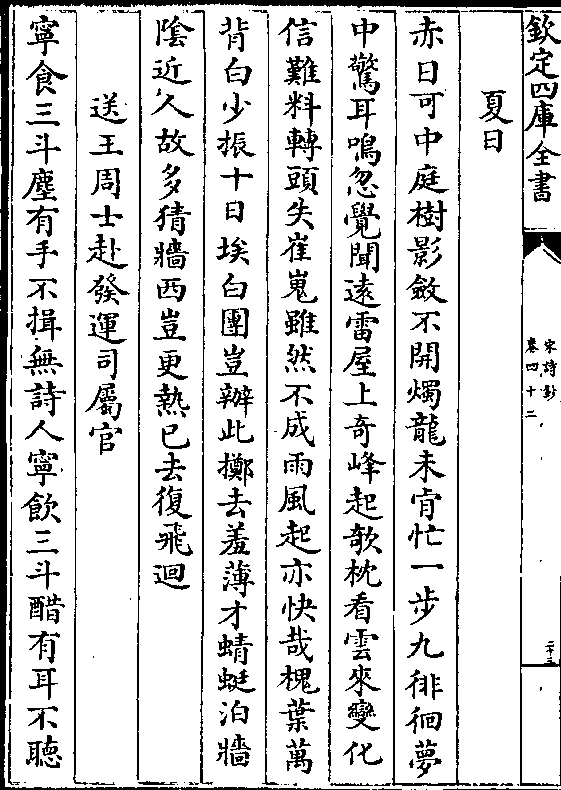 欽定四庫全書
宋詩鈔
卷四十二
二十三
夏日
赤日可中庭樹影斂不開燭龍未肯忙一步九徘徊夢
中驚耳鳴忽覺聞遠雷屋上奇峰起欹枕看雲來變化
信難料轉頭失崔嵬雖然不成雨風起亦快哉槐葉萬
背白少振十日埃白團豈辦此擲去羞薄才蜻蜓泊牆
陰近人故多猜牆西豈更熱已去復飛迴
送王周士赴發運司屬官
寧食三斗塵有手不揖無詩人寧飲三斗醋有耳不聽